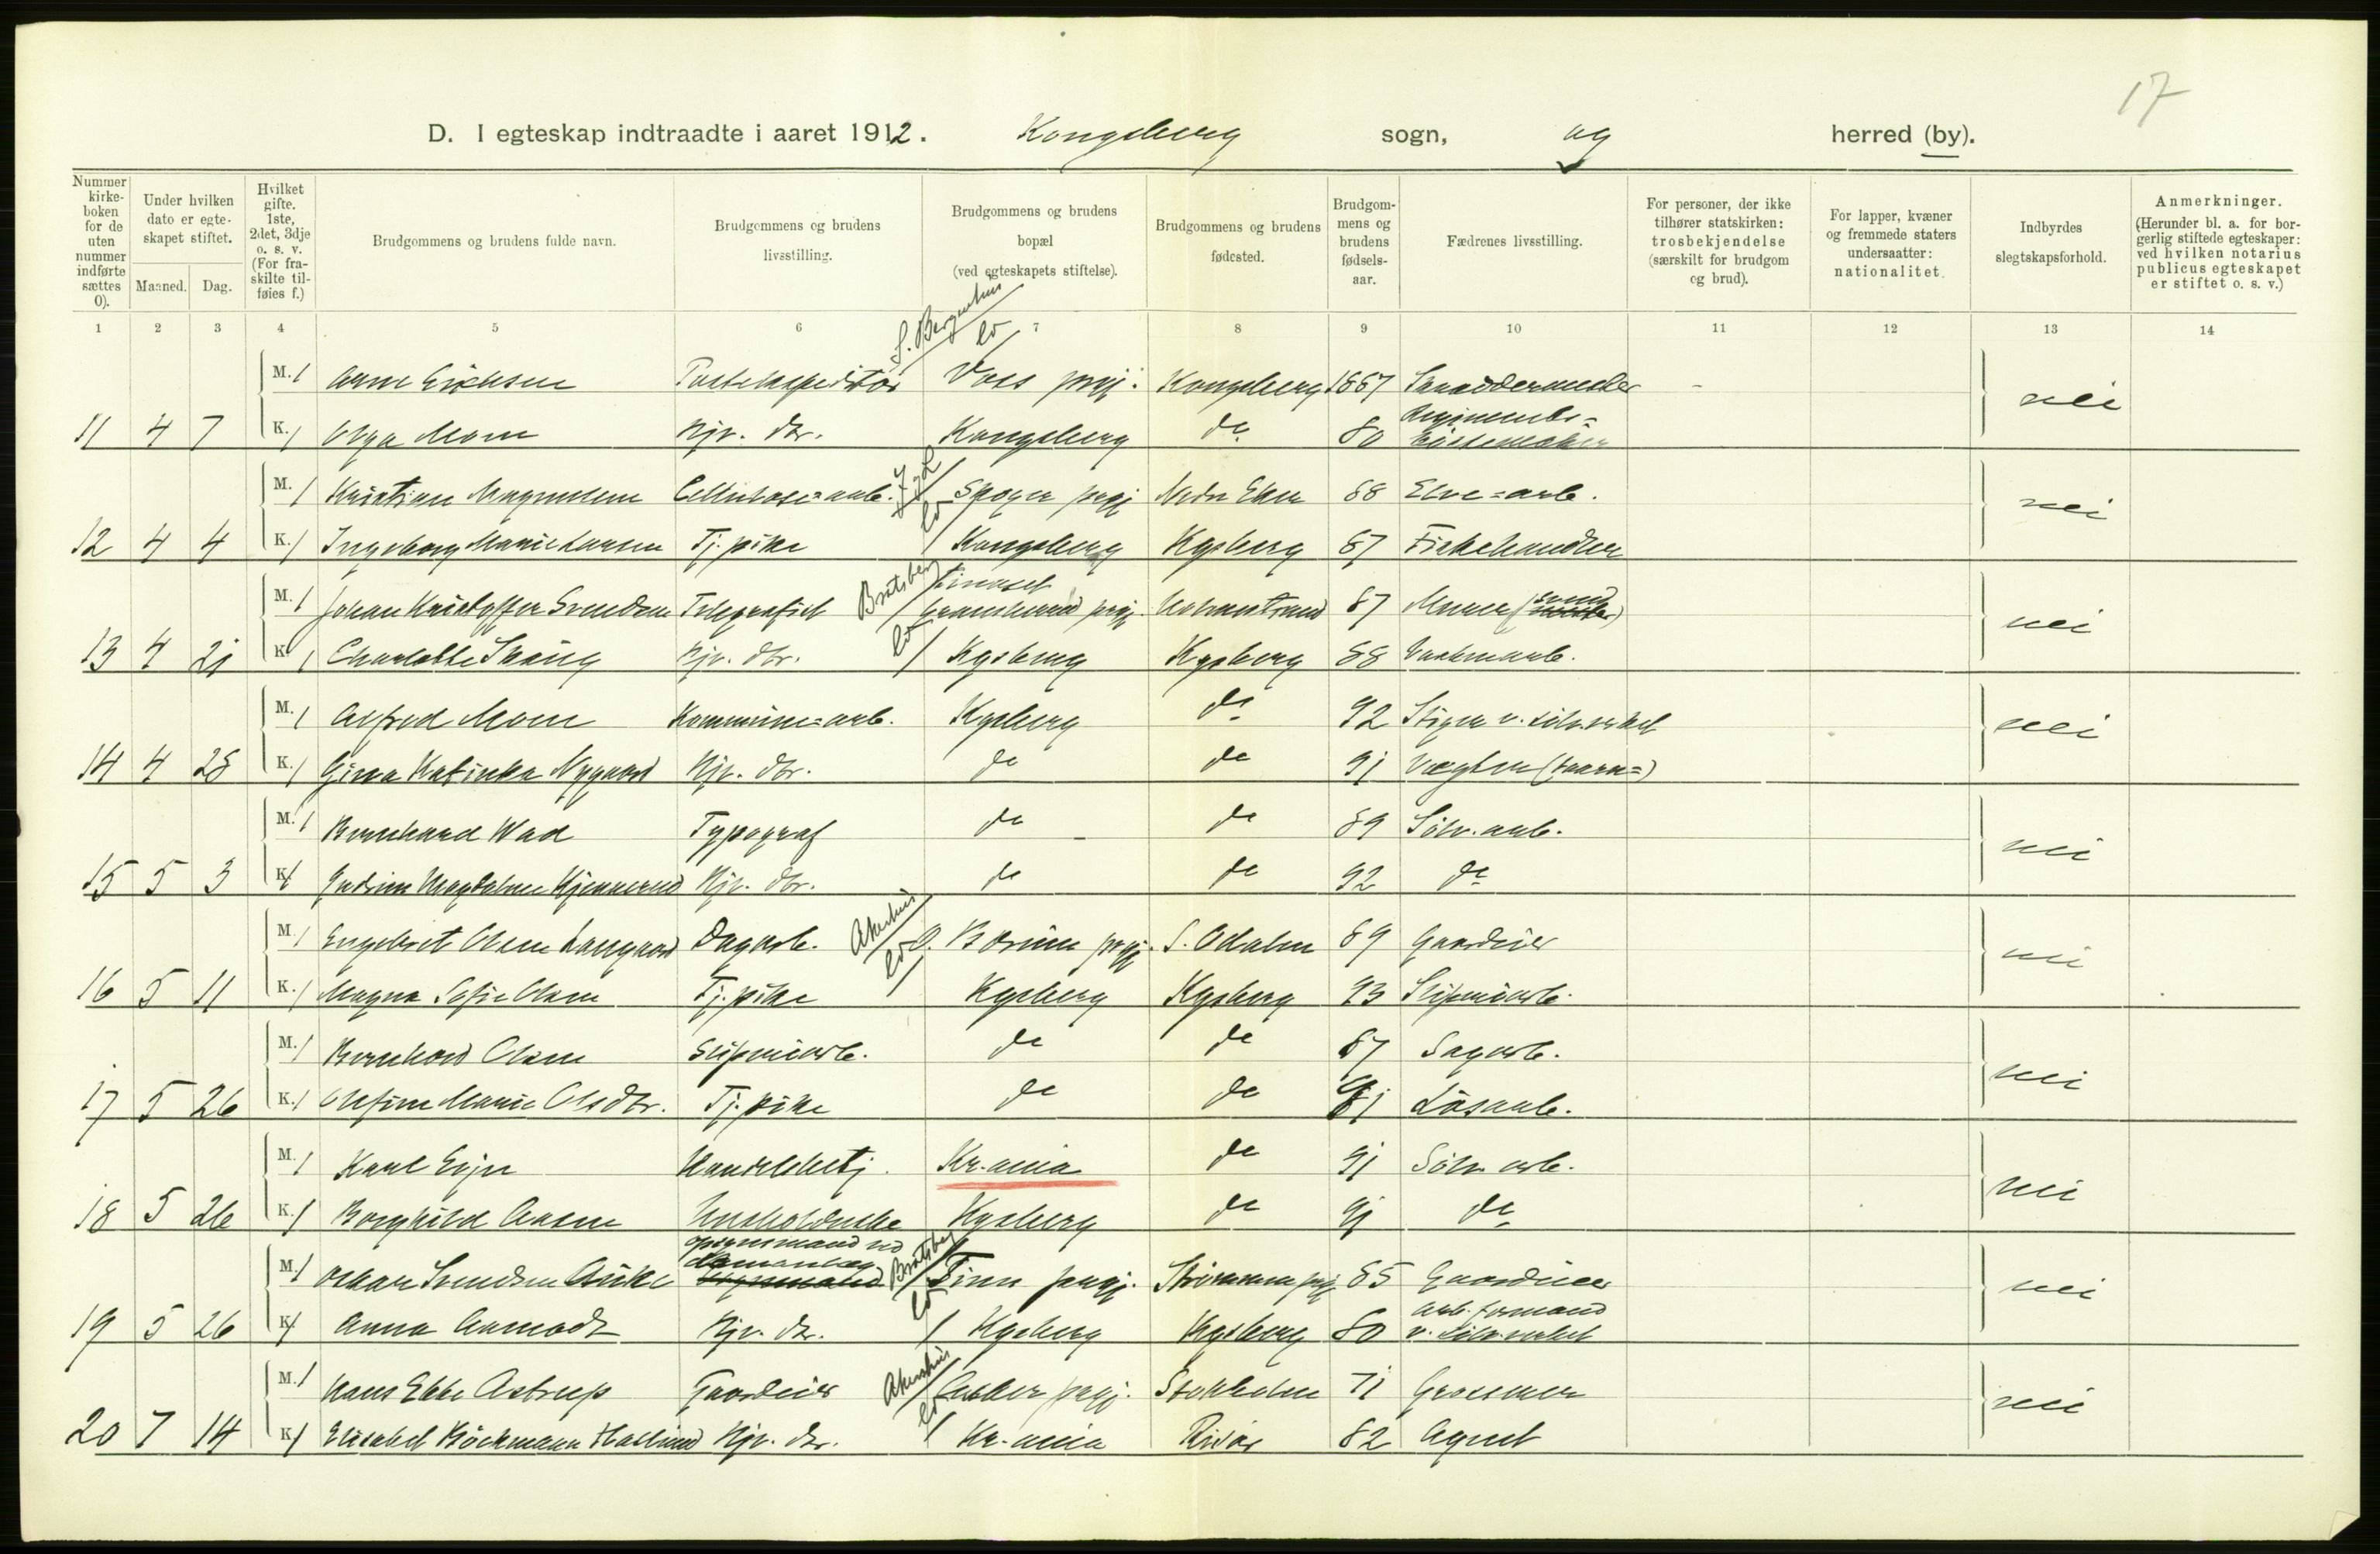 17
D. I egteskap indtraadte i aaret 1912. Kongsberg sogn, og herred (by).
Nummer kirkeboken for de uten nummer indførte sættes 0).
Under hvilken dato er egteskapet stiftet.
Maaned. Dag.
Hvilket gifte. 1ste, 2det, 3dje o. s. v. (For fraskilte tilføies f.)
Brudgommens og brudens fulde navn.
Brudgommens og brudens livsstilling.
Brudgommens og brudens bopæl (ved egteskapets stiftelse).
Brudgommens og brudens fødested.
Brudgommens og brudens fødselsaar.
Fædrenes livsstilling.
For personer, der ikke tilhører statskirken: trosbekjendelse (særskilt for brudgom og brud).
For lapper, kvæner og fremmede staters undersaatter: nationalitet.
Indbyrdes slegtskapsforhold.
Anmerkninger. (Herunder bl. a. for borgerlig stiftede egteskaper: ved hvilken notarius publicus egteskapet er stiftet o. s. v.)
1 2 3 4 5 6 7 8 9 10 11 12 13 14
S. Bergenhus
M. 1 Arne Erichsen Postekspeditør Voss prgj. Kongsberg 1887 nei
11 4 7 K. 1 Olga Moen Hjv. dtr. Kongsberg do 80 Regiments-
M. 1 Kristian Magnussen Cellulose-arb. Skoger prgj Nedre Eker 88 Elve-arb. nei
12 4 4 K. 1 Ingeborg Marie Larsen Tj. pike Kongsberg Kgsberg 87 Fiskehandler
Bratsberg Tinoset
M. 1 Johan Kristoffer Svendsen Telegrafist Gransherred prgj. Holmestrand 87 Murer (svend) nei
13 4 21 K. 1 Charlotte Skaug Hjv. dtr. Kgsberg Kgsberg 88 Verksarb.
M. 1 Alfred Moen Kommune-arb. Kgsberg do 92 Stiger v. sølvverket nei
14 4 28 K. 1 Gina Katinka Nygaard Hjv. dtr. do do 91 Vægter (taarn-)
M. 1 Bernhard Wad Typograf do do 89 Sølv. arb. nei
15 5 3 K. 1 Gudrun Magdalene Kjennerud Hjv. dtr. do do 92 do
Akershus
M. 1 Engebret Olsen Langaard Dagarb. Ø. Bærum prgj. S. Odalen 89 Gaardeier nei
16 5 11 K. 1 Magna Sofie Olsen Tj. pike Kgsberg Kgsberg 93 Sliperiarb.
M. 1 Bernhard Olsen Sliperiarb. do do 87 Sagarb. nei
17 5 26 K. 1 Olefine Marie Olsdtr. Tj. pike do do 91 Løsarb.
M. 1 Karl Eyje Handelsbetj. Kr.ania do 91 Sølv. arb. nei
18 5 26 K. 1 Borghild Aasen Husholderske Kgsberg do 91 do
opsynsmand ved Bratsberg
M. 1 Oskar Svendsen Tinn prgj. Strømmen prgj 85 Gaardeier nei
arb. formand
19 5 26 K. 1 Anna Aamodt Hjv. dtr. Kgsberg Kgsberg 80 v. Sølvverket
Akershus
M. 1 Hans Ebbe Astrup Gaardeier Asker prgj. Stokholm 71 Grosserer nei
20 7 14 K. 1 Elisabet Böckmann Haslund Hjv. dtr. Kr.ania Risør 82 Agent